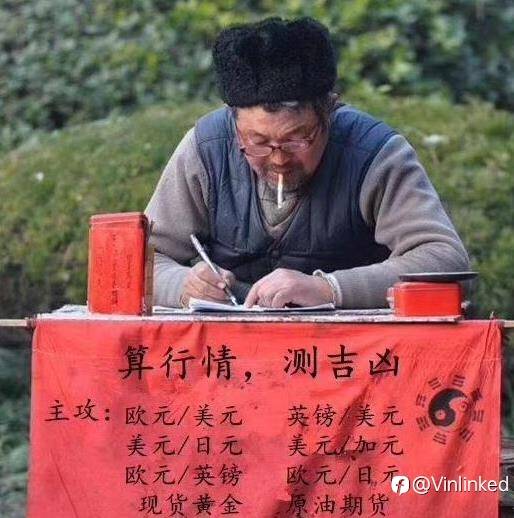 算行情，测吉凶
主攻：欧元/美元 英镑/美元
美元/日元 美元/加元
欧元/英镑 欧元/日元
现货黄金 原油期货
@Vinlinked